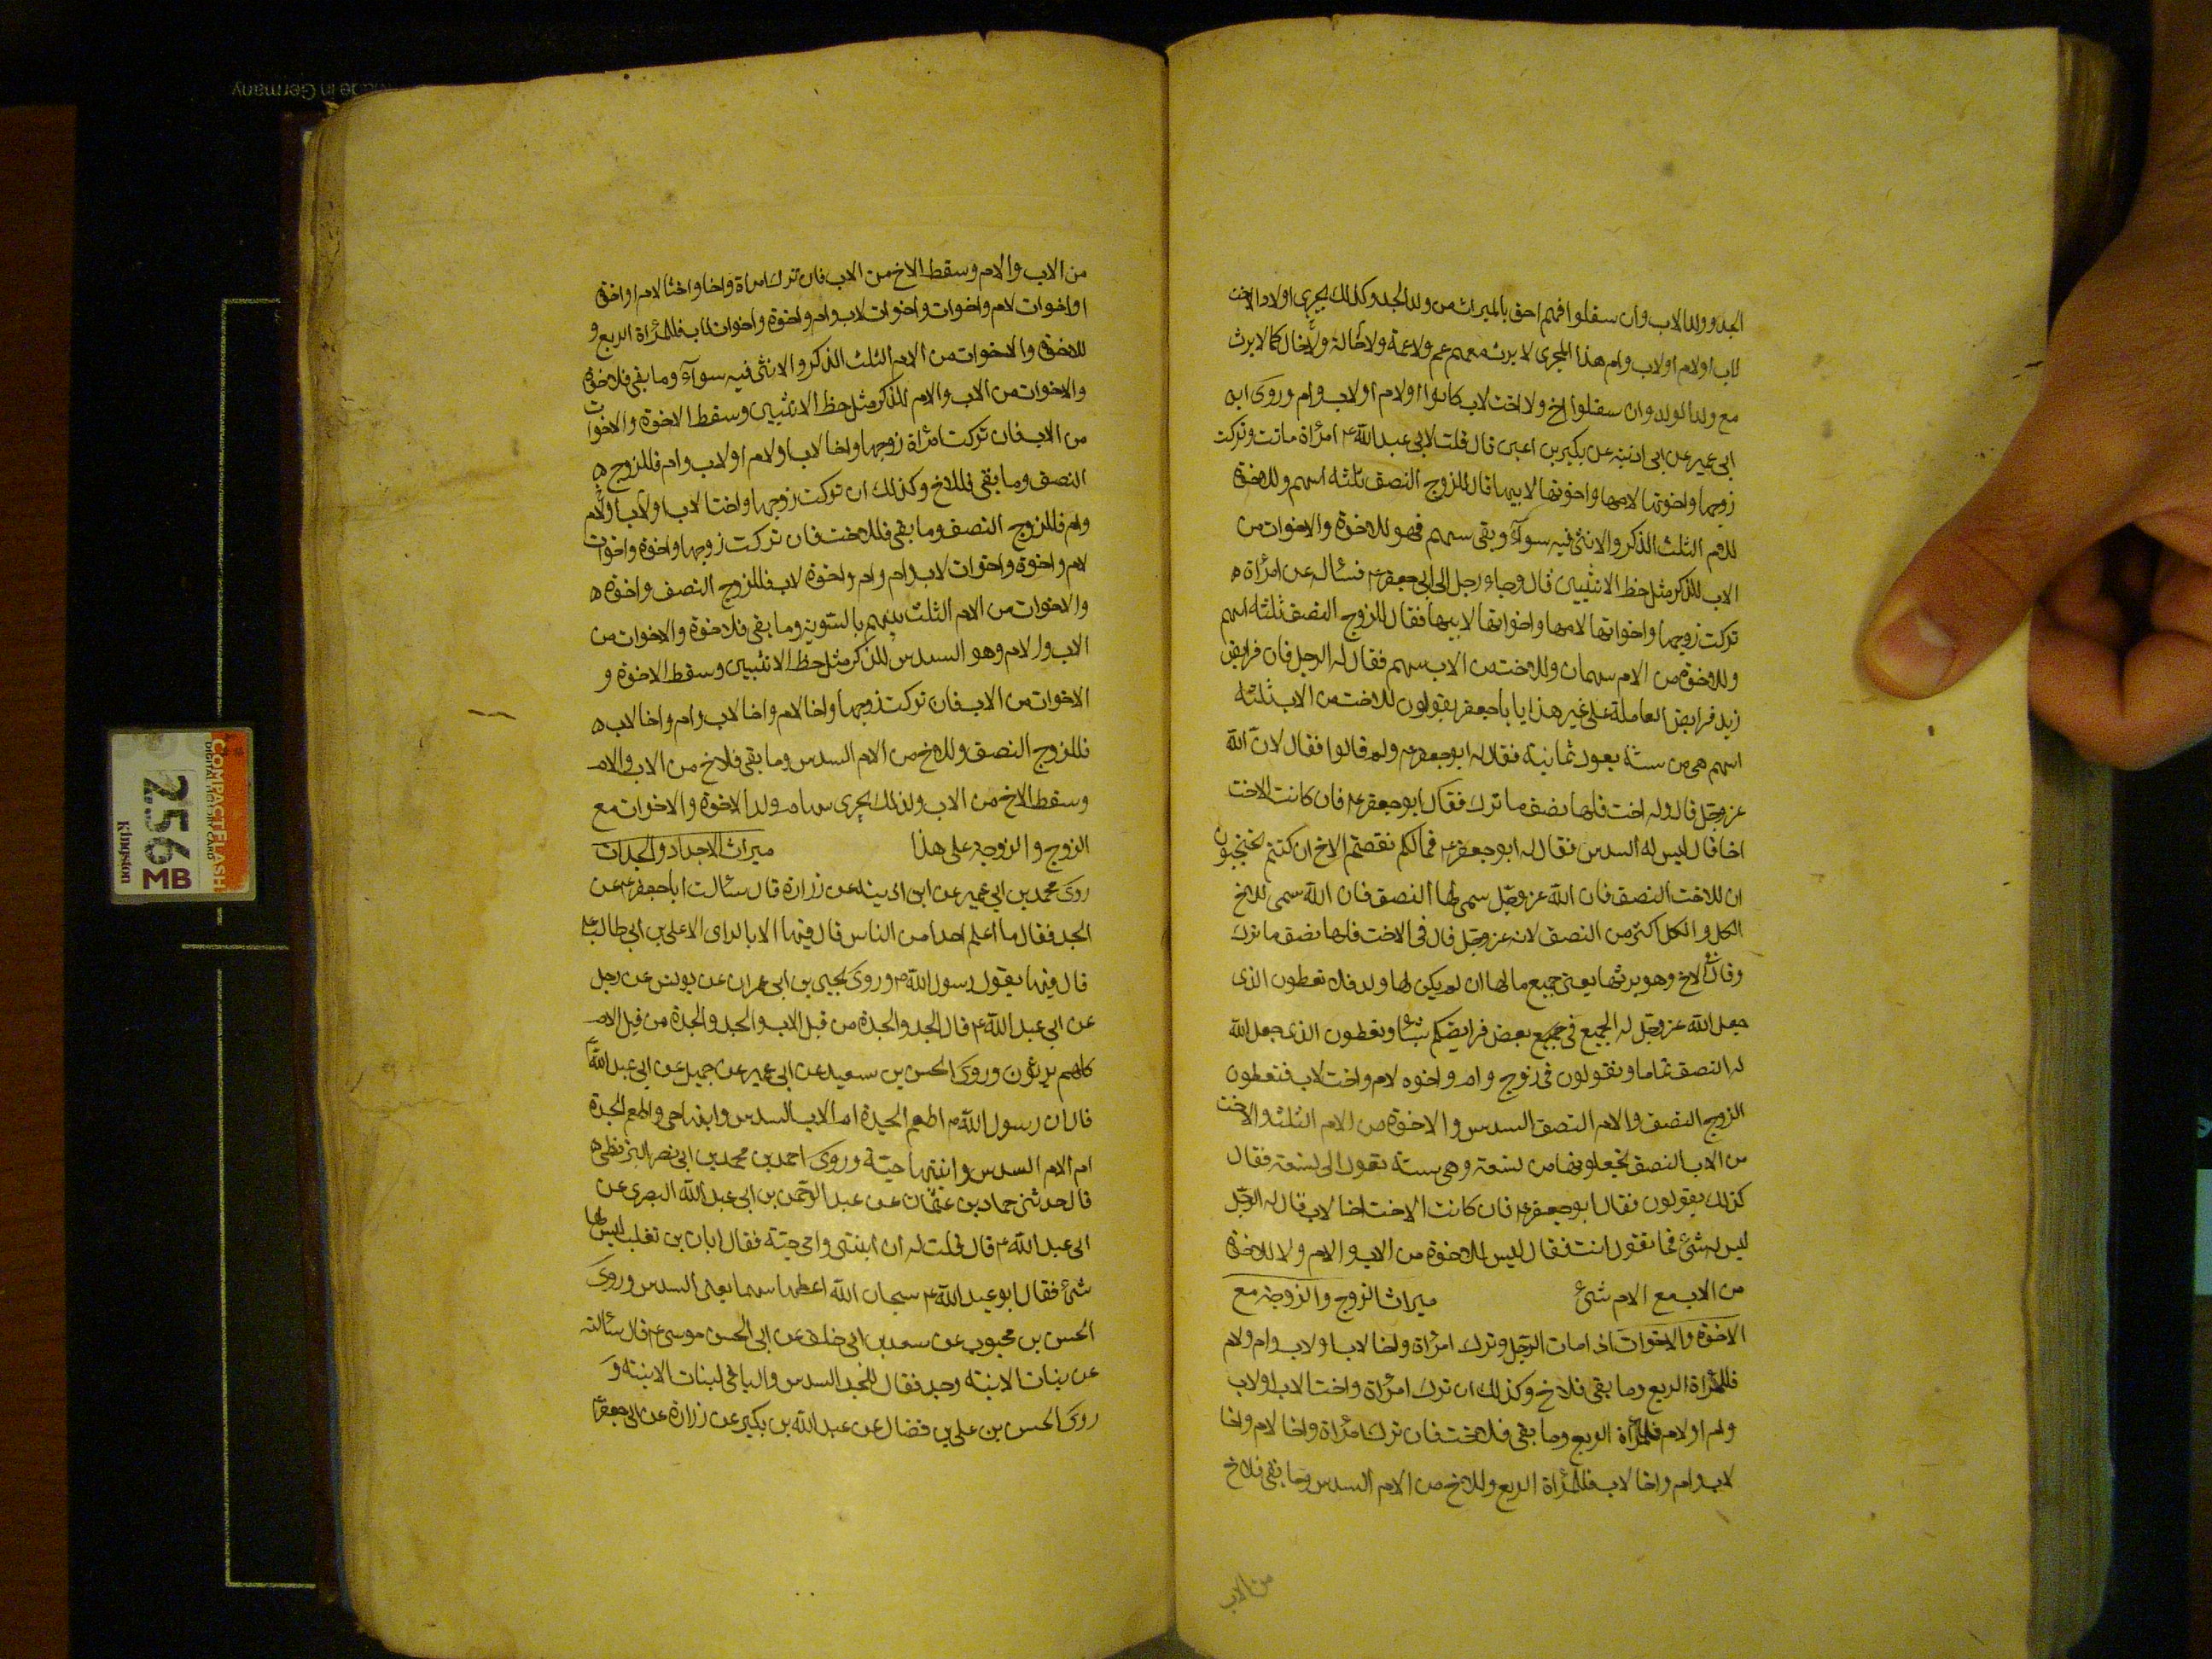 الجد وولد الاب وان سفلوا فهم احق بالميراث من ولد الجد وكذلك يجرى اولاد الاخت
لاب او لام او لاب وام هذا المجرى لا يرث معهم عم ولا عمة ولا خالة ولا خال كما لا يرث
مع ولد الولد وان سفلوا اخ ولا اخت لاب كانوا او لام او لاب وام وروى ابن
ابى عمير عن ابن اذينة عن بكير بن اعين قال قلت لابى عبد الله ع امرأة ماتت وتركت
زوجها واخوتها لامها واخوتها لابيها قال للزوج النصف ثلثه اسهم وللاخوة
للام الثلث الذكر والانثى فيه سوآء وبقى سهم فهو للاخوة والاخوات من
الاب للذكر مثل حظ الانثيين قال وجاء رجل الى ابى جعفر ع فسئاله عن امرأة ه
تركت زوجها واخواتها لامها واخواتها لابيها فقال للزوج النصف ثلثه اسهم
وللاخوة من الام سهمان وللاخت من الاب سهم فقال له الرجل فان فرايض
زيد وفرايض العاملة على غير هذا يا با جعفر يقولون للاخت من الاب ثلثه
اسهم هى من ستة يعود ثمانية فقال له ابو جعفر ع ولم قالوا فقال لان الله
عز وجل قال وله اخت فلها نصف ما ترك فقال ابو جعفر ع فان كانت الاخت
اخا قال ليس له السدس فقال له ابو جعفر ع فما لكم نقصتم الاخ ان كنتم تحتجون
ان للاخت النصف فان الله عز وجل سمى لها النصف فان الله سمى للاخ
الكل والكل اكثر من النصف لانه عز وجل قال فى الاخت فلها نصف ما ترك
وقال فى الاخ وهو يرثها يعنى جميع مالها ان لم يكن لها ولد فلا تعطون الذى
جعل الله عز وجل له الجميع فى جميع بعض فرايضكم شيئا وتعطون الذى جعل الله
له النصف تماما وتقولون فى زوج وام واخوه لام واخت لاب فتعطون
الزوج النصف والام السدس والاخوة من الام الثلث والاخت
من الاب النصف تجعلونها من تسعة وهى ستة تعول الى تسعة فقال
كذلك يقولون فقال ابو جعفر ع فان كانت الاخت اخا لاب قال له الرجل
ليس له شئ فما تقول انت فقال ليس للاخوة من الاب والام ولا للاخوة
من الاب مع الام شئ ميراث الزوج والزوجة مع
الاخوة والاخوات اذا مات الرجل وترك امرأة واخا لاب او لاب وام او لام
فللمرأة الربع وما بقى فللاخ وكذلك ان ترك امرأة واختا لاب او لاب
وام او لام فللمرأة الربع وما بقى فللاخت فان ترك امرأة واخا لام واخا
لاب وام واخا لاب فللمرأة الربع وللاخ من الام السدس وما بقى فللاخ
من الاب
من الاب والام وسقط الاخ من الاب فان ترك امراة واخا واختا لام او اخوة
او اخوات لام واخوات واخوات لاب وام واخوة واخوات لاب فللمرأة الربع و
للاخوة والاخوات من الام الثلث الذكر والانثى فيه سوآء وما بقى فللاخوة
والاخوات من الاب والام للذكر مثل حظ الانثيين وسقط الاخوة والاخوات
من الاب فان تركت امرأة زوجها واخا لاب او لام او لاب وام فللزوج ه
النصف وما بقى فللاخ وكذلك ان تركت زوجها واختا لاب او لاب او لام
وام فللزوج النصف وما بقى فللاخت فان تركت زوجها واخوة واخوات
لام واخوة واخوات لاب وام واخوة لاب فللزوج النصف واخوة ه
والاخوات من الام الثلث بينهم بالسوية وما بقى فللاخوة والاخوات من
الاب والام وهو السدس للذكر مثل حظ الانثيين وسقط الاخوة و
الاخوات من الاب فان تركت زوجها واخا لام واخا لاب وام واخا لاب ه
فللزوج النصف وللاخ من الام السدس وما بقى فللاخ من الاب والام
وسقط الاخ من الاب وكذلك يجرى سهام ولد الاخوة والاخوات مع
الزوج والزوجه على هذا ميراث الاجداد والجدات
روى محمد بن ابى عمير عن ابن اذينه عن زرارة قال سئالت ابا جعفر ع عن
الجد فقال ما اعلم احدا من الناس قال فيها الا بالراى الا على بن ابى طالب ع
قال فيها بقول رسول الله ص وروى يحيى بن ابى عمران عن يونس عن رجل
عن ابى عبد الله ع قال الجد والجدة من قبل الاب والجد والجدة من قبل الام
كلهم يرثون وروى الحسن بن سعيد عن ابى عمير عن جميل عن ابى عبد الله ع
قال ان رسول الله ص اطعم الجدة ام الاب السدس وابنها حى واطعم الجدة
ام الام السدس وابنتها حيّة وروى احمد بن محمد بن ابى نصر البزنطى ه
قال حدثنى حماد بن عثمان عن عبد الرحمن بن ابى عبد الله البصرى عن
ابى عبد الله ع قال قلت له ان ابنتى وامى حيّة فقال ابان بن تغلب ليس لها
شئ فقال ابو عبد الله ع سبحان الله اعطها سهما يعنى السدس وروى
الحسن بن محبوب عن سعد بن ابى خلف عن ابى الحسن موسى ع قال سئالته
عن بنات الابنة وجد فقال للجد السدس والباقى لبنات الابنة و
روى الحسن بن على بن فضال عن عبد الله بن بكير عن زرارة عن ابى جعفر ع
Made in Germany
COMPACTFLASH
DIGITAL MEMORY CARD
256
MB
Kingston